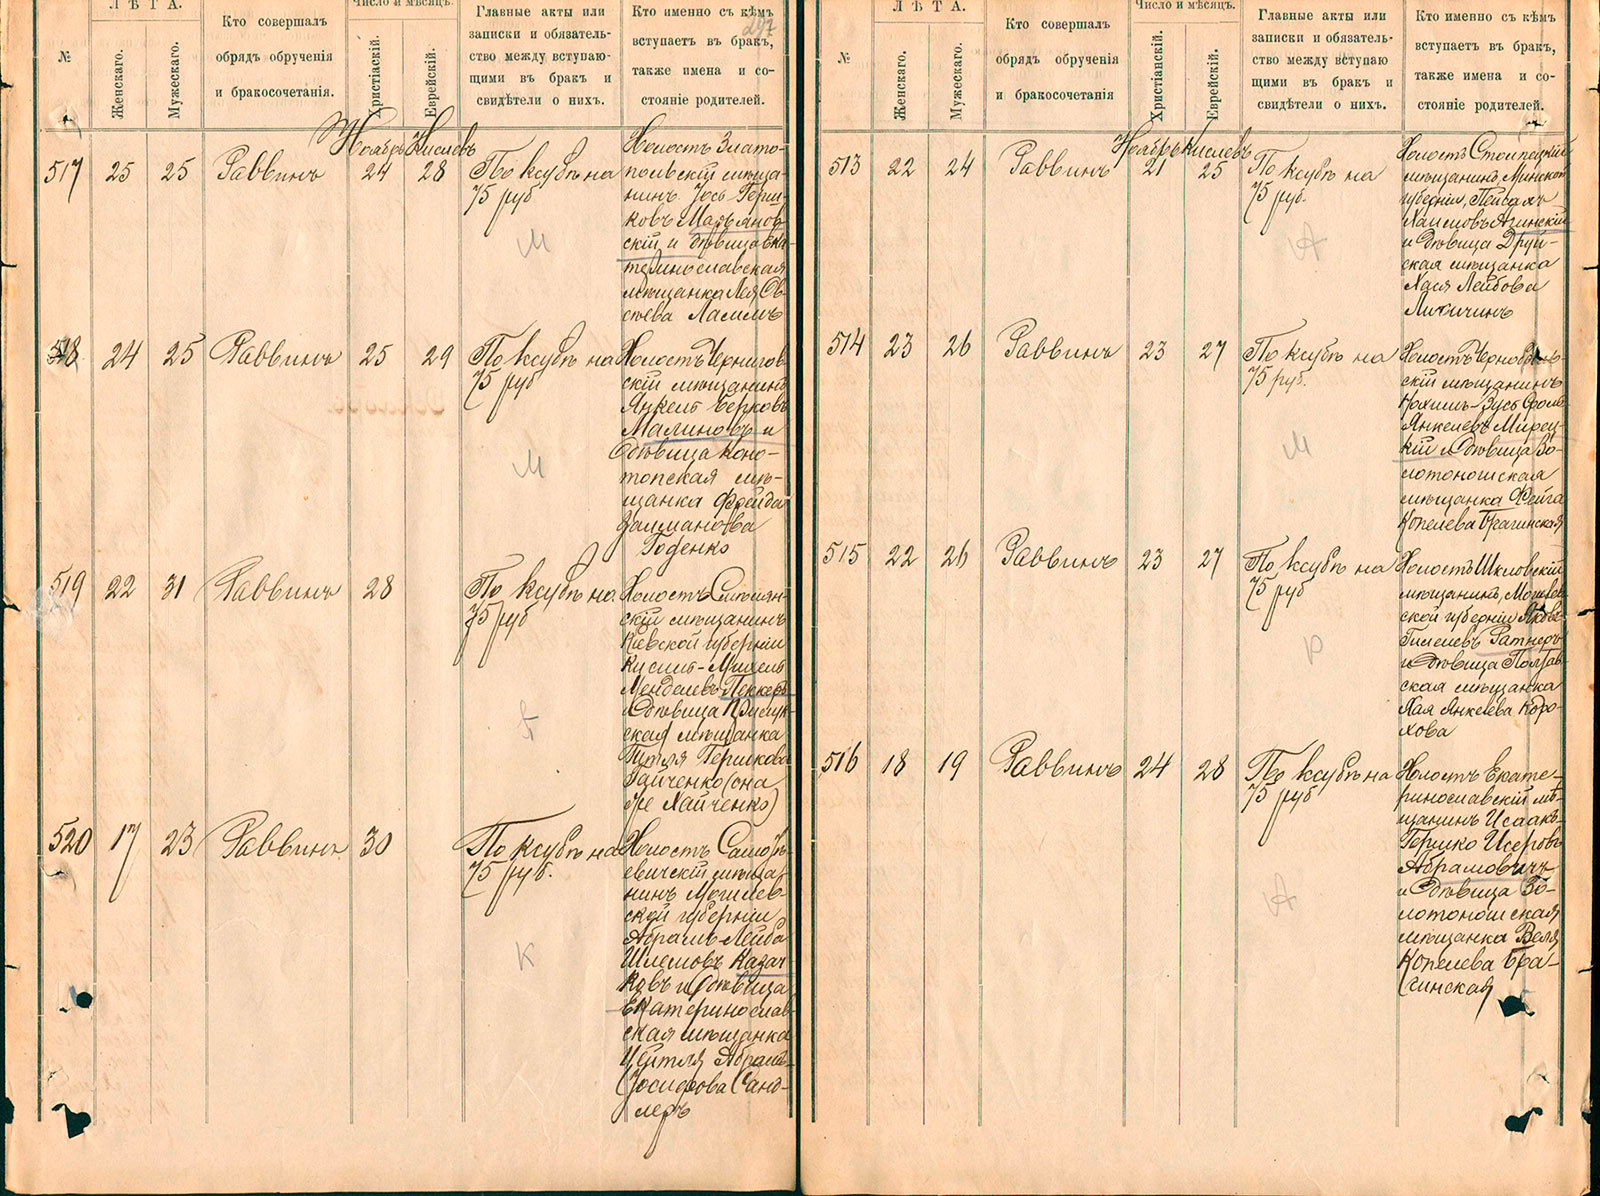 ЛѢТА.
Число и мѣсяцъ.
№
Женскаго.
Мужескаго.
Кто совершалъ
обрядъ обрученія
и бракосочетанія.
Христіаскій.
Еврейскій.
Главные акты или
записки и обязатель-
ство между вступаю-
щими въ бракъ и
свидѣтели о нихъ.
Кто именно съ кѣмъ
вступаетъ въ бракъ,
также имена и со-
стояніе родителей.
Ноябрь Кислевъ
517 25 25 Раввинъ 24 28
По ксубѣ на
75 руб
М
Холостъ Злато-
польскій мѣща-
нинъ Іось Герш-
ковъ Мальянов-
скій и дѣвица Ека-
теринославская
мѣщанка Лея Ов-
сѣева
518 24 25 Раввинъ 25 29
По ксубѣ на
75 руб
М
Холостъ Чернигов-
скій мѣщанинъ
Янкель Берковъ
Малиновъ и
дѣвица Коно-
топская мѣ-
щанка Фрейда
Залманова
Годенко
519 22 31 Раввинъ 28
По ксубѣ на
75 руб
Б
Холостъ Смѣлян-
скій мѣщанинъ
Кіевской губерніи
Кусиль-Михель
Менделевъ Пеккеръ
и дѣвица Прилук-
ская мѣщанка
Гитля Гершкова
Гайченко (она
же Хайченко)
520 17 23 Раввинъ 30
По ксубѣ на
75 руб.
К
Холостъ
мѣща-
нинъ Могилев-
ской губерніи
Абрамъ-Лейба
Шлемовъ Казач-
ковъ и дѣвица
Екатеринослав-
ская мѣщанка
Цейтля Абрамъ-
Іосифова Санд-
леръ
ЛѢТА.
Число и мѣсяцъ.
№
Женскаго.
Мужескаго.
Кто совершалъ
обрядъ обрученія
и бракосочетанія
Христіанскій.
Еврейскій.
Главные акты или
записки и обязатель-
ство между вступаю
щими въ бракъ и
свидѣтели о нихъ.
Кто именно съ кѣмъ
вступаетъ въ бракъ,
также имена и со-
стояніе родителей.
Ноябрь Кислевъ
513 22 24 Раввинъ 21 25
По ксубѣ на
75 руб.
А
Холостъ Столпецкій
мѣщанинъ, Минской
губерніи, Пейсахъ
Хаимовъ Агинскій
и дѣвица Друй-
ская мѣщанка
Хася Лейбова
514 23 26 Раввинъ 23 27
По ксубѣ на
75 руб.
М
Холостъ Чернобыль-
скій мѣщанинъ
Нохимъ-Зусь Сроль-
Янкелевъ Мирец-
кій и дѣвица Зо-
лотоношская
мѣщанка Фейга
Копелева Брагинская
515 22 26 Раввинъ 23 27
По ксубѣ на
75 руб
Р
Холостъ Шкловскій
мѣщанинъ, Могилев-
ской губерніи Яковъ
Гилелевъ Ратнеръ
и дѣвица Полтав-
ская мѣщанка
Хая Янкелева Коро-
хова
516 18 19 Раввинъ 24 28
По ксубѣ на
75 руб
А
Холостъ Екате-
ринославскій мѣ-
щанинъ Исаакъ-
Гершко Исеровъ
Абрамовичъ
и дѣвица Зо-
лотоношская
мѣщанка Веля
Копелева Бра-
гинская